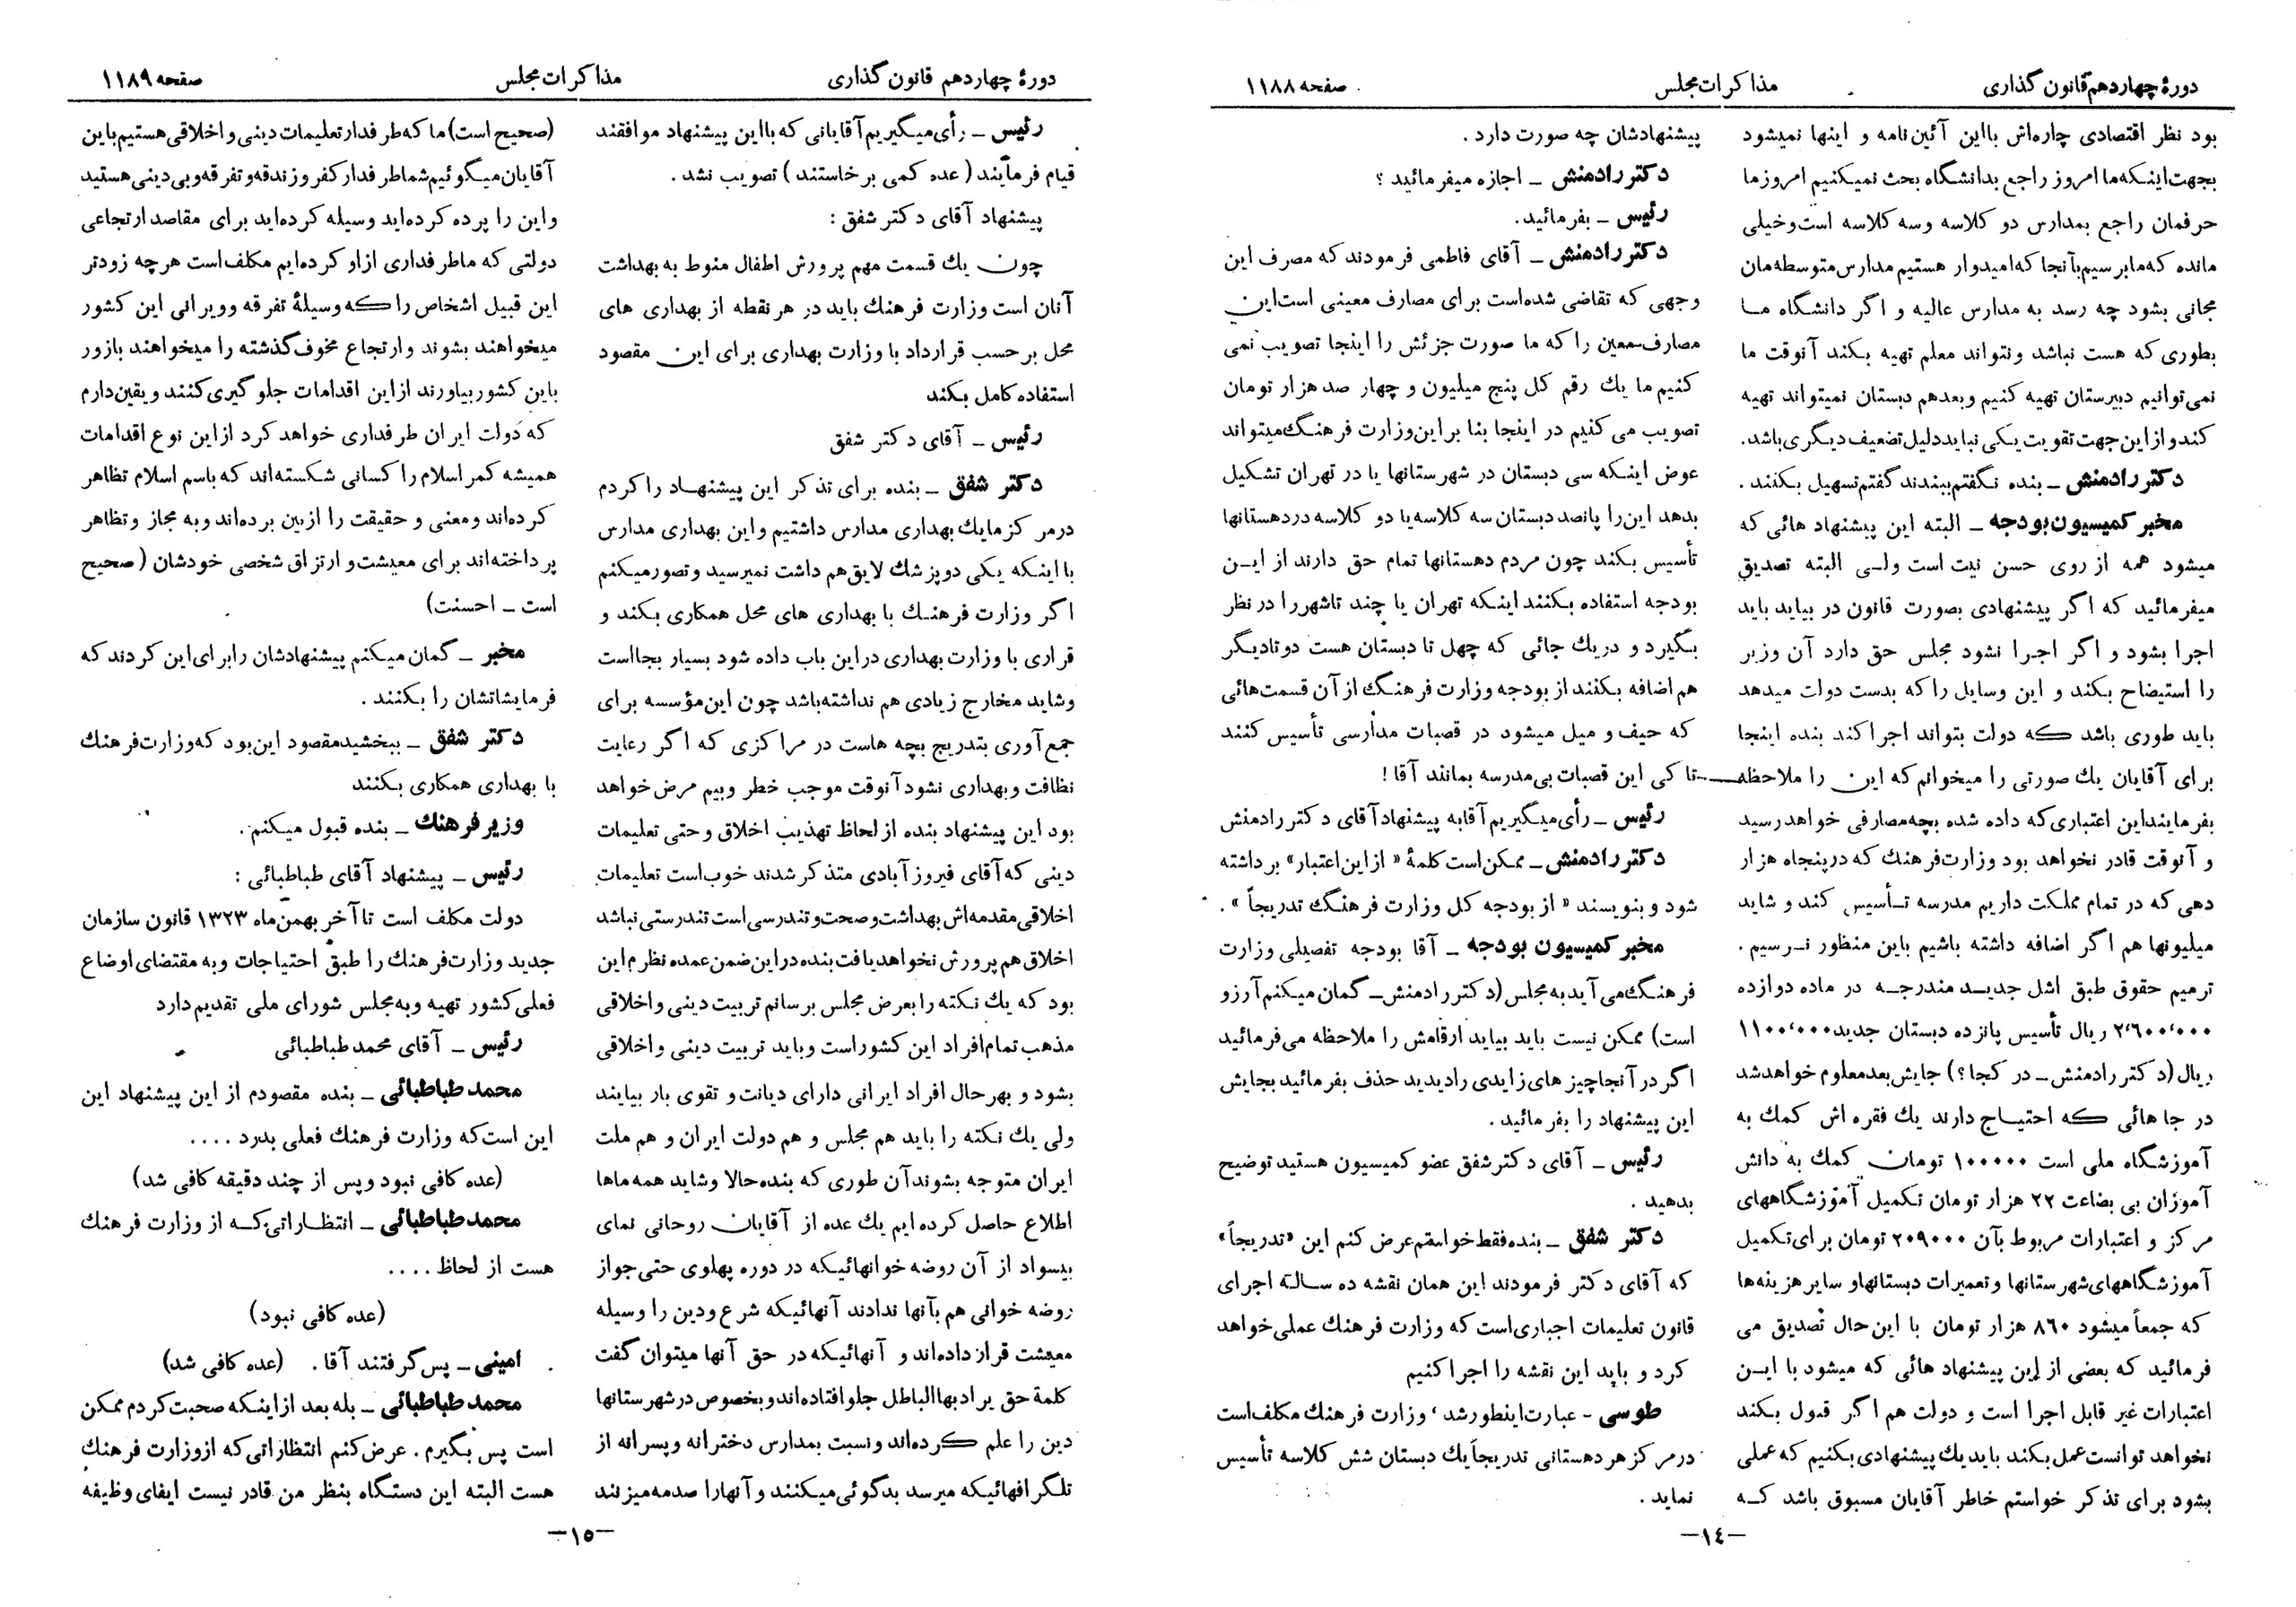 دورهٔ چهاردهم قانون گذاری
مذاکرات مجلس
صفحه ۱۱۸۸
بود نظر اقتصادی چاره‌اش با این آئین نامه و اینها نمیشود
بجهت اینکه ما امروز راجع بدانشگاه بحث نمیکنیم امروز ما
حرفمان راجع بمدارس دو کلاسه وسه کلاسه است و خیلی
مانده که ما برسیم بآنجا که امیدوار هستیم مدارس متوسطه‌مان
مجانی بشود چه رسد به مدارس عالیه و اگر دانشگاه مـا
بطوری که هست نباشد و نتواند معلم تهیه بکند آنوقت ما
نمی‌توانیم دبیرستان تهیه کنیم و بعدهم دبستان نمیتواند تهیه
کند و از این جهت تقویت یکی نباید دلیل تضعیف دیگری باشد.
دکتر رادمنش ـ بنده نگفتم ببندند گفتم تسهیل بکنند .
مخبر کمیسیون بودجه ـ البته این پیشنهاد هائی که
میشود همه از روی حسن نیت است ولـی البته تصدیق
میفرمائید که اگر پیشنهادی بصورت قانون در بیاید باید
اجرا بشود و اگر اجرا نشود مجلس حق دارد آن وزیر
را استیضاح بکند و این وسایل را که بدست دولت میدهد
باید طوری باشد که دولت بتواند اجرا کند بنده اینجا
برای آقایان یك صورتی را میخوانم که این را ملاحظه
بفرمایند این اعتباری که داده شده بچه مصارفی خواهد رسید
و آنوقت قادر نخواهد بود وزارت فرهنك که در پنجاه هزار
دهی که در تمام مملکت داریم مدرسه تـأسیس کند و شاید
میلیونها هم اگر اضافه داشته باشیم باین منظور نـرسیم .
ترمیم حقوق طبق اشل جدیـد مندرجـه در ماده دوازده
۲٬۶۰۰٬۰۰۰ ریال تأسیس پانزده دبستان جدید ۱۱۰۰٬۰۰۰
ریال (دکتر رادمنش ـ در کجا؟) جایش بعد معلوم خواهد شد
در جا هائی کـه احتیـاج دارند یك فقره اش کمك به
آموزشگاه ملی است ۱۰۰۰۰۰ تومان کمك به دانش
آموزان بی بضاعت ۲۲ هزار تومان تکمیل آموزشگاههای
مرکز و اعتبارات مربوط بآن ۲۰۹۰۰۰ تومان برای تکمیل
آموزشگاههای شهرستانها و تعمیرات دبستانها و سایر هزینه‌ها
که جمعاً میشود ۸۶۰ هزار تومان با این حال تصدیق می
فرمائید که بعضی از این پیشنهاد هائی که میشود با ایـن
اعتبارات غیر قابل اجرا است و دولت هم اگر قبول بکند
نخواهد توانست عمل بکند باید یك پیشنهادی بکنیم که عملی
بشود برای تذکر خواستم خاطر آقایان مسبوق باشد کـه
پیشنهادشان چه صورت دارد .
دکتر رادمنش ـ اجازه میفرمائید ؟
رئیس ـ بفرمائید.
دکتر رادمنش ـ آقای فاطمی فرمودند که مصرف این
وجهی که تقاضی شده‌است برای مصارف معینی است این
مصارف معین را که ما صورت جزئش را اینجا تصویب نمی
کنیم ما یك رقم کل پنج میلیون و چهار صد هزار تومان
تصویب می کنیم در اینجا بنا براین وزارت فرهنگ میتواند
عوض اینکه سی دبستان در شهرستانها یا در تهران تشکیل
بدهد این را پانصد دبستان سه کلاسه یا دو کلاسه در دهستانها
تأسیس بکند چون مردم دهستانها تمام حق دارند از ایـن
بودجه استفاده بکنند اینکه تهران یا چند تا شهر را در نظر
بگیرد و در یك جائی که چهل تا دبستان هست دو تا دیگر
هم اضافه بکنند از بودجه وزارت فرهنگ از آن قسمت هائی
که حیف و میل میشود در قصبات مدارسی تأسیس کنند
تا کی این قصبات بی‌مدرسه بمانند آقا !
رئیس ـ رأی میگیریم آقا به پیشنهاد آقای دکتر رادمنش
دکتر رادمنش ـ ممکن است کلمهٔ « از این اعتبار» برداشته
شود و بنویسند « از بودجه کل وزارت فرهنگ تدریجاً » .
مخبر کمیسیون بودجه ـ آقا بودجه تفصیلی وزارت
فرهنگ می آید به مجلس (دکتر رادمنش ـ گمان میکنم آرزو
است) ممکن نیست باید بیاید ارقامش را ملاحظه می‌فرمائید
اگر در آنجا چیز های زایدی را دیدید حذف بفرمائید بجایش
این پیشنهاد را بفرمائید .
رئیس ـ آقای دکتر شفق عضو کمیسیون هستید توضیح
بدهید .
دکتر شفق ـ بنده فقط خواستم عرض کنم این «تدریجاً»
که آقای دکتر فرمودند این همان نقشه ده سـاله اجرای
قانون تعلیمات اجباری است که وزارت فرهنك عملی خواهد
کرد و باید این نقشه را اجرا کنیم
طوسی - عبارت اینطور شد ، وزارت فرهنك مکلف است
در مرکز هر دهستانی تدریجاً یك دبستان شش کلاسه تأسیس
نماید .
ـ۱۴ـ
دورهٔ چهاردهم قانون گذاری
مذاکرات مجلس
صفحه ۱۱۸۹
رئیس ـ رأی میگیریم آقایانی که با این پیشنهاد موافقند
قیام فرمایند ( عده کمی برخاستند ) تصویب نشد .
پیشنهاد آقای دکتر شفق :
چون یك قسمت مهم پرورش اطفال منوط به بهداشت
آنان است وزارت فرهنك باید در هر نقطه از بهداری های
محل برحسب قرارداد با وزارت بهداری برای این مقصود
استفاده کامل بکند
رئیس ـ آقای دکتر شفق
دکتر شفق ـ بنده برای تذکر این پیشنهـاد را کردم
درمرکز ما یك بهداری مدارس داشتیم و این بهداری مدارس
با اینکه یکی دو پزشك لایق هم داشت نمیرسید و تصور میکنم
اگر وزارت فرهنك با بهداری های محل همکاری بکند و
قراری با وزارت بهداری در این باب داده شود بسیار بجا است
و شاید مخارج زیادی هم نداشته باشد چون این مؤسسه برای
جمع آوری بتدریج بچه هاست در مراکزی که اگر رعایت
نظافت و بهداری نشود آنوقت موجب خطر و بیم مرض خواهد
بود این پیشنهاد بنده از لحاظ تهذیب اخلاق و حتی تعلیمات
دینی که آقای فیروز آبادی متذکر شدند خوب است تعلیمات
اخلاقی مقدمه‌اش بهداشت و صحت و تندرسی است تندرستی نباشد
اخلاق هم پرورش نخواهد یافت بنده در این ضمن عمده نظرم این
بود که یك نکته را بعرض مجلس برسانم تربیت دینی و اخلاقی
مذهب تمام افراد این کشور است و باید تربیت دینی و اخلاقی
بشود و بهر حال افراد ایرانی دارای دیانت و تقوی بار بیایند
ولی یك نکته را باید هم مجلس و هم دولت ایران و هم ملت
ایران متوجه بشوند آن طوری که بنده حالا و شاید همه ماها
اطلاع حاصل کرده ایم یك عده از آقایان روحانی نمای
بیسواد از آن روضه خوانهائیکه در دوره پهلوی حتی جواز
روضه خوانی هم بآنها ندادند آنهائیکه شرع و دین را وسیله
معیشت قرار داده‌اند و آنهائیکه در حق آنها میتوان گفت
کلمة حق یراد بها الباطل جلو افتاده‌اند و بخصوص در شهرستانها
دین را علم کرده‌اند و نسبت بمدارس دخترانه و پسرانه از
تلگرافهائیکه میرسد بدگوئی میکنند و آنها را صدمه میزنند
(صحیح است) ما که طرفدار تعلیمات دینی و اخلاقی هستیم باین
آقایان میگوئیم شما طرفدار کفر و زندقه و تفرقه و بی دینی هستید
و این را پرده کرده‌اید وسیله کرده‌اید برای مقاصد ارتجاعی
دولتی که ما طرفداری از او کرده‌ایم مکلف است هرچه زودتر
این قبیل اشخاص را که وسیلهٔ تفرقه و ویرانی این کشور
میخواهند بشوند و ارتجاع مخوف گذشته را میخواهند بازور
باین کشور بیاورند از این اقدامات جلو گیری کنند و یقین دارم
که دولت ایران طرفداری خواهد کرد از این نوع اقدامات
همیشه کمر اسلام را کسانی شکسته‌اند که باسم اسلام تظاهر
کرده‌اند و معنی و حقیقت را از بین برده‌اند و به مجاز و تظاهر
پرداخته‌اند برای معیشت و ارتزاق شخصی خودشان ( صحیح
است ـ احسنت)
مخبر ـ گمان میکنم پیشنهادشان را برای این کردند که
فرمایشاتشان را بکنند .
دکتر شفق ـ ببخشید مقصود این بود که وزارت فرهنك
با بهداری همکاری بکنند
وزیر فرهنك ـ بنده قبول میکنم.
رئیس ـ پیشنهاد آقای طباطبائی :
دولت مکلف است تا آخر بهمن ماه ۱۳۲۳ قانون سازمان
جدید وزارت فرهنك را طبق احتیاجات و به مقتضای اوضاع
فعلی کشور تهیه و به مجلس شورای ملی تقدیم دارد
رئیس ـ آقای محمد طباطبائی
محمد طباطبائی ـ بنده مقصودم از این پیشنهاد این
این است که وزارت فرهنك فعلی بدرد ....
(عده کافی نبود و پس از چند دقیقه کافی شد)
محمد طباطبائی ـ انتظـاراتی که از وزارت فرهنك
هست از لحاظ ....
(عده کافی نبود)
امینی ـ پس گرفتند آقا . (عده کافی شد)
محمد طباطبائی ـ بله بعد از اینکه صحبت کردم ممکن
است پس بگیرم . عرض کنم انتظاراتی که از وزارت فرهنك
هست البته این دستگاه بنظر من قادر نیست ایفای وظیفه
ـ۱۵ـ